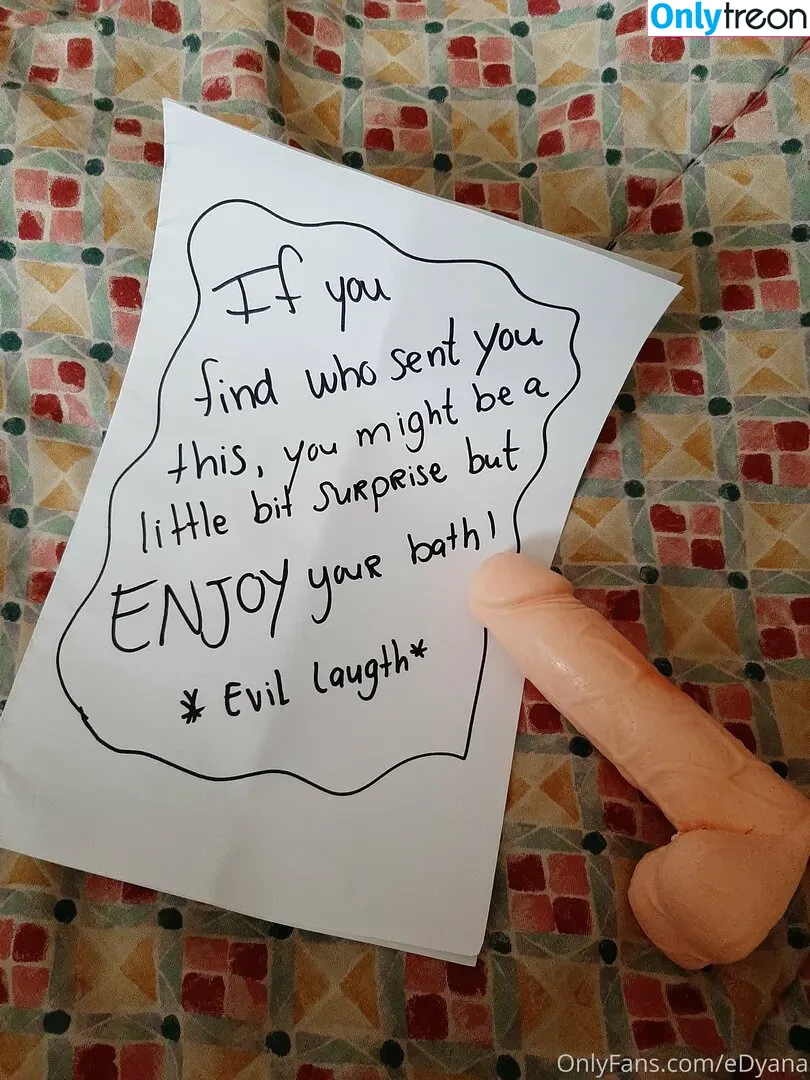 Onlytreon
If you
find who sent you
this, you might be a
little bit surprise but
ENJOY your bath!
* Evil laugth*
OnlyFans.com/eDyana